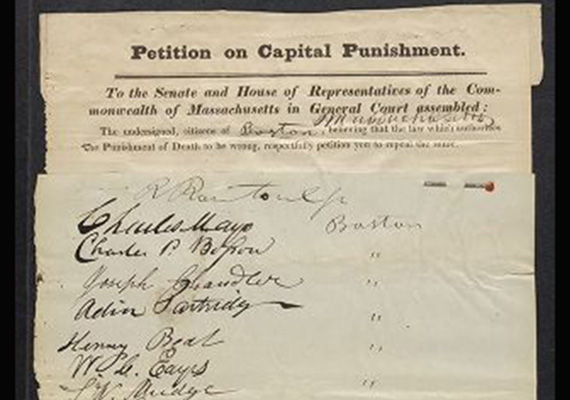 Petition on Capital Punishment.
To the Senate and House of Representatives of the Com-
monwealth of Massachusetts in General Court assembled:
Massachusetts
The undersigned, citizens of Boston, believing that the law which authorizes
the Punishment of Death to be wrong, respectfully petition you to repeal the same.
R Rantoul Jr
Charles Mayo Boston
Charles P. Bosson "
Joseph Chandler "
Adin Partridge "
Henry Beal "
W. G. Eayrs
Mudge "